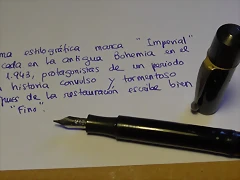 ma estilográfica marca "Imperial"
cada en la antigua Bohemia en el
1.943, protagonistas de un período
historia convulso y tormentoso
pues de la restauración escribe bien
"Fino".